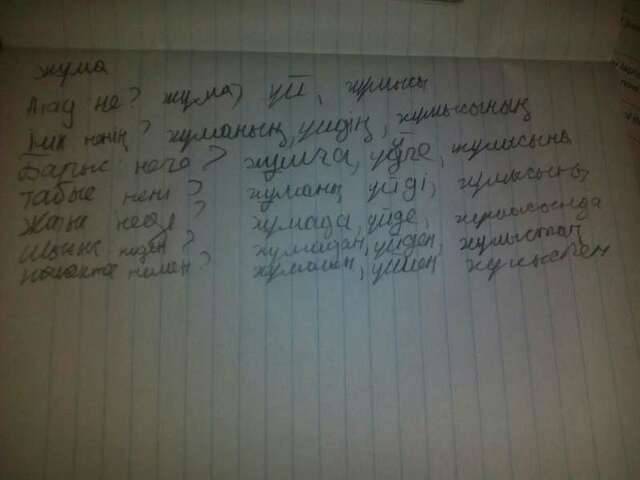 жума
Атау не? жума, үй, жұмысы
Ілік ненің? жуманың, үйдің, жұмысының
Барыс неге? жумға, үйге, жұмысына
табыс нені? жуманы үйді, жұмысының
Жатыс неде? жумада, үйде, жұмысында
Шығыс неден? жумадан, үйден, жұмыстан
көмектес немен? жумамен, үймен жұмыспен